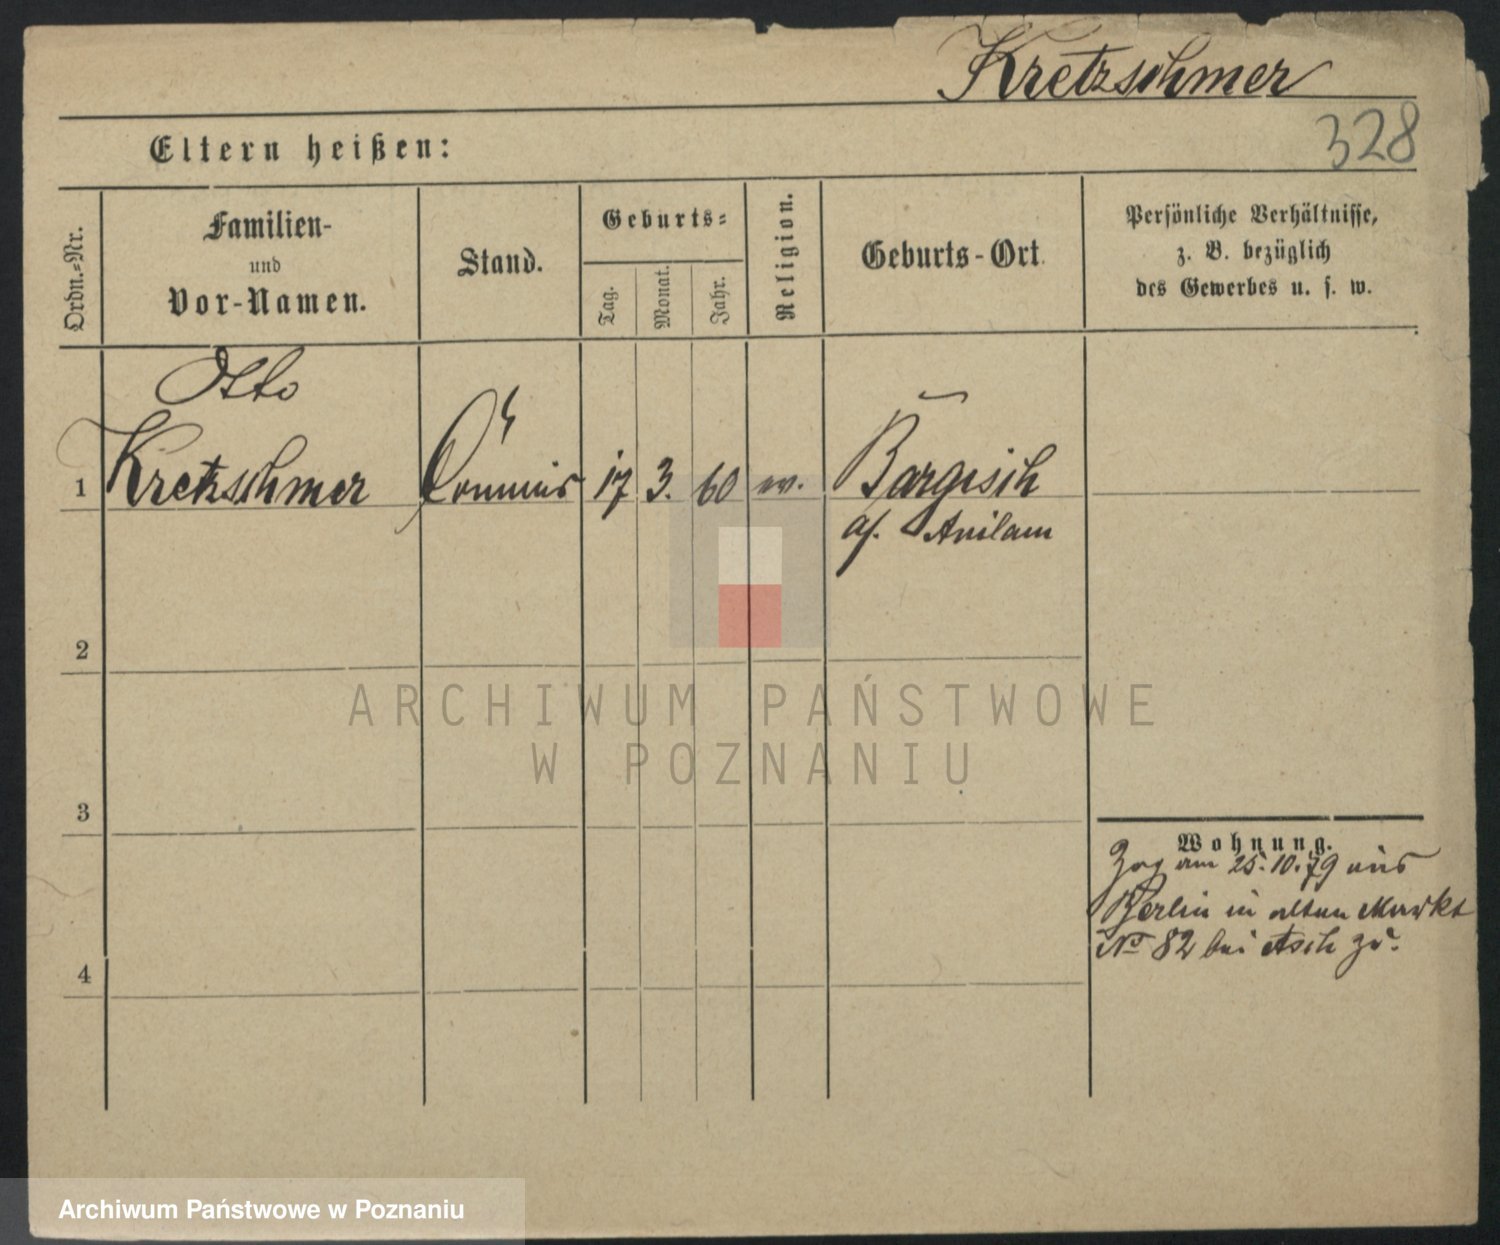 Kretzschmer
328
Eltern heißen:
Ordn.-Nr.
Familien-
und
Vor-Namen.
Stand.
Geburts-
Tag.
Monat.
Jahr.
Religion.
Geburts-Ort.
Persönliche Verhältnisse,
z. B. bezüglich
des Gewerbes u. s. w.
Otto
1 Kretzschmer Commis 17 3. 60
2
3
4
Wohnung.
Zog am 25.10.79 aus
Berlin in alten Markt
No 82 bei Asch zu.
ARCHIWUM PAŃSTWOWE
W POZNANIU
Archiwum Państwowe w Poznaniu